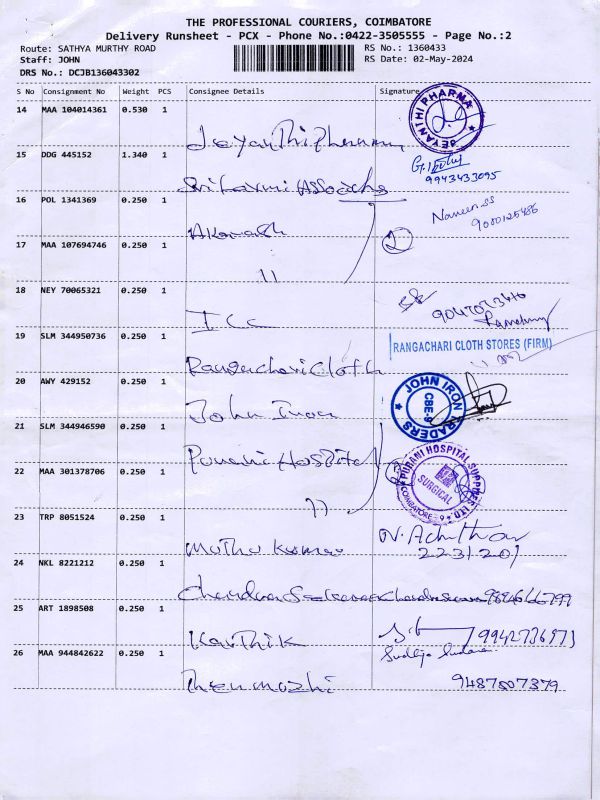 THE PROFESSIONAL COURIERS, COIMBATORE
Delivery Runsheet - PCX - Phone No.:0422-3505555 - Page No.:2
Route: SATHYA MURTHY ROAD
RS No.: 1360433
Staff: JOHN
RS Date: 02-May-2024
DRS No.: DCJB136043302
S No Consignment No Weight PCS Consignee Details Signature
14 MAA 104014361 0.530 1
JEYANTHI PHARMA
15 DDG 445152 1.340 1
9943433095
Sri Laxmi Associates
16 POL 1341369 0.250 1
Naveen SS
9080125486
17 MAA 107694746 0.250 1
11
18 NEY 70065321 0.250 1
ICC
19 SLM 344950736 0.250 1
RANGACHARI CLOTH STORES (FIRM)
Rangachari Cloth
20 AWY 429152 0.250 1
John Iron
JOHN IRON TRADERS CBE-9
21 SLM 344946590 0.250 1
Purani Hospital
PURANI HOSPITAL SUPPLIES LTD.
SURGICAL
COIMBATORE - 9
22 MAA 301378706 0.250 1
11
23 TRP 8051524 0.250 1
Muthu Kumar
2231201
24 NKL 8221212 0.250 1
25 ART 1898508 0.250 1
Karthik
9942736973
26 MAA 944842622 0.250 1
Thenmozhi
9487507379